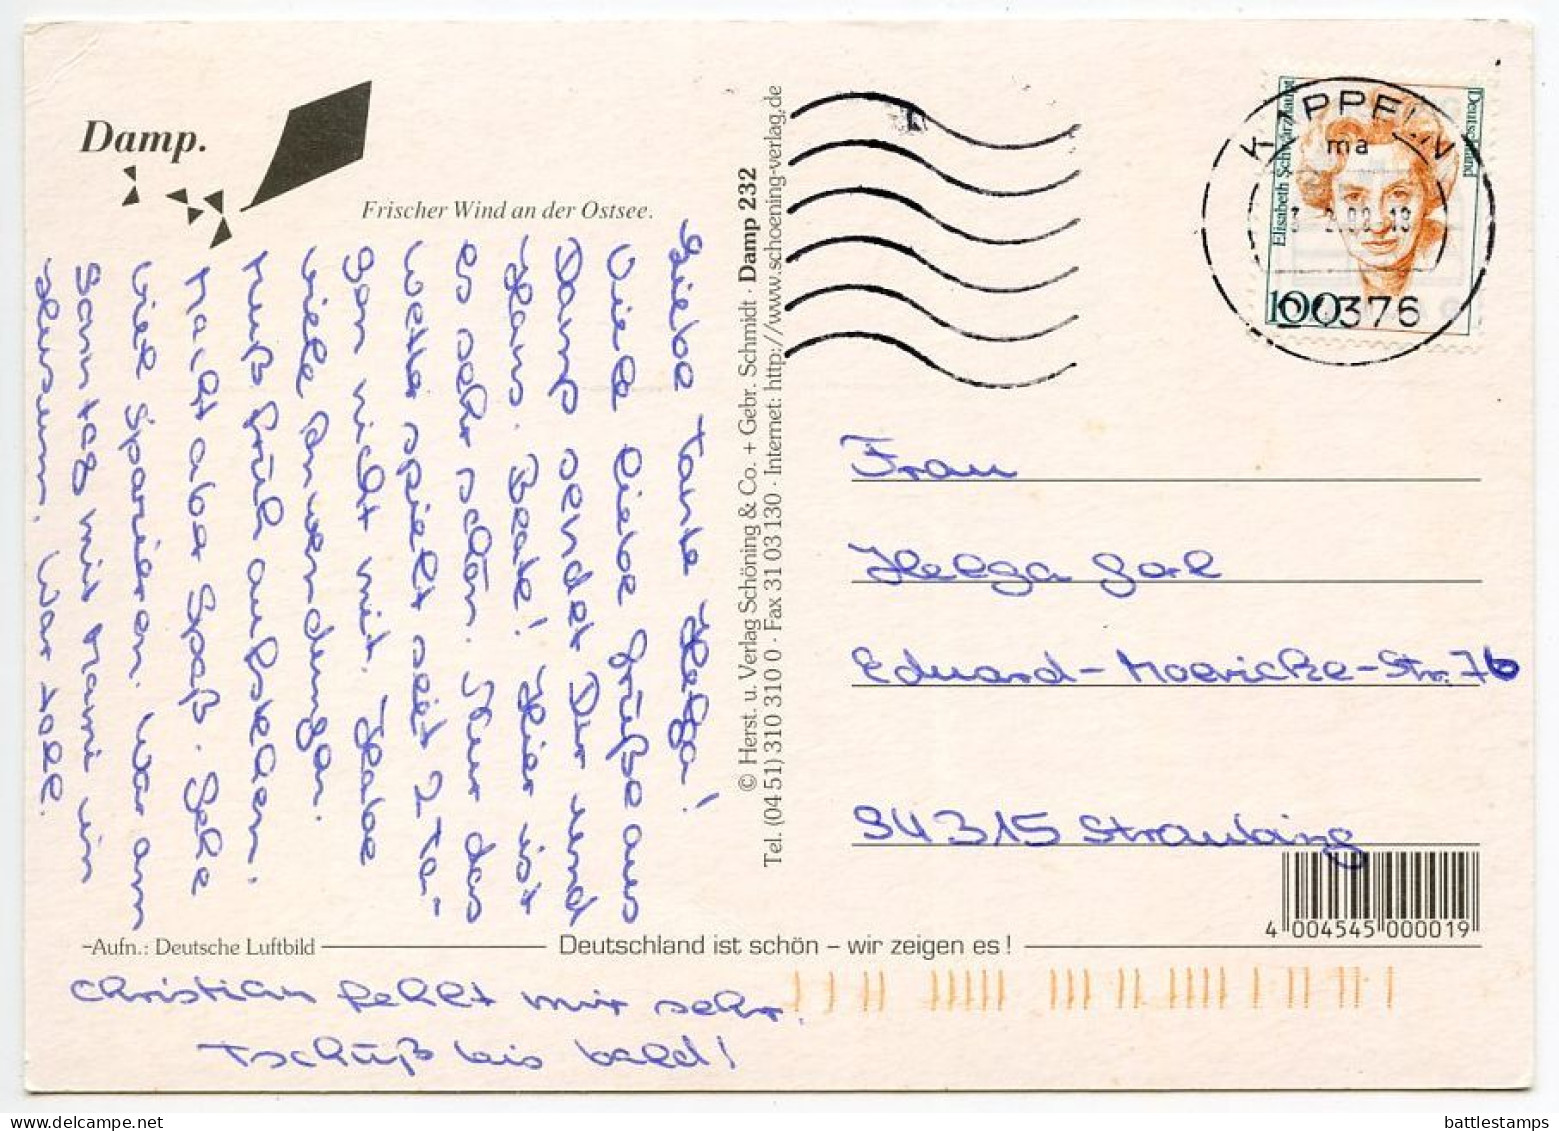 Damp.
Frischer Wind an der Ostsee.
Liebe Tante Helga!
Viele liebe Grüße aus
Damp sendet Dir und
Hans, Beate! Hier ist
es sehr schön. Nur das
Wetter spielt seit 2 Ta-
gen nicht mit. Habe
viele Anwendungen.
Muß früh aufstehen.
Macht aber Spaß. Gehe
viel spazieren. War am
Sonntag mit Mami in
. War toll.
Christian fehlt mir sehr.
Tschüß bis bald!
–Aufn.: Deutsche Luftbild
Deutschland ist schön – wir zeigen es !
© Herst. u. Verlag Schöning & Co. + Gebr. Schmidt · Damp 232
Tel. (04 51) 310 310 0 · Fax 31 03 130 · Internet: http://www.schoening-verlag.de
Deutschland
Elisabeth Schwarzhaupt
100
KAPPELN
ma
24376
Frau
Helga
Eduard-Moericke-Str. 76
94315 Straubing
4 004545 000019
battlestamps